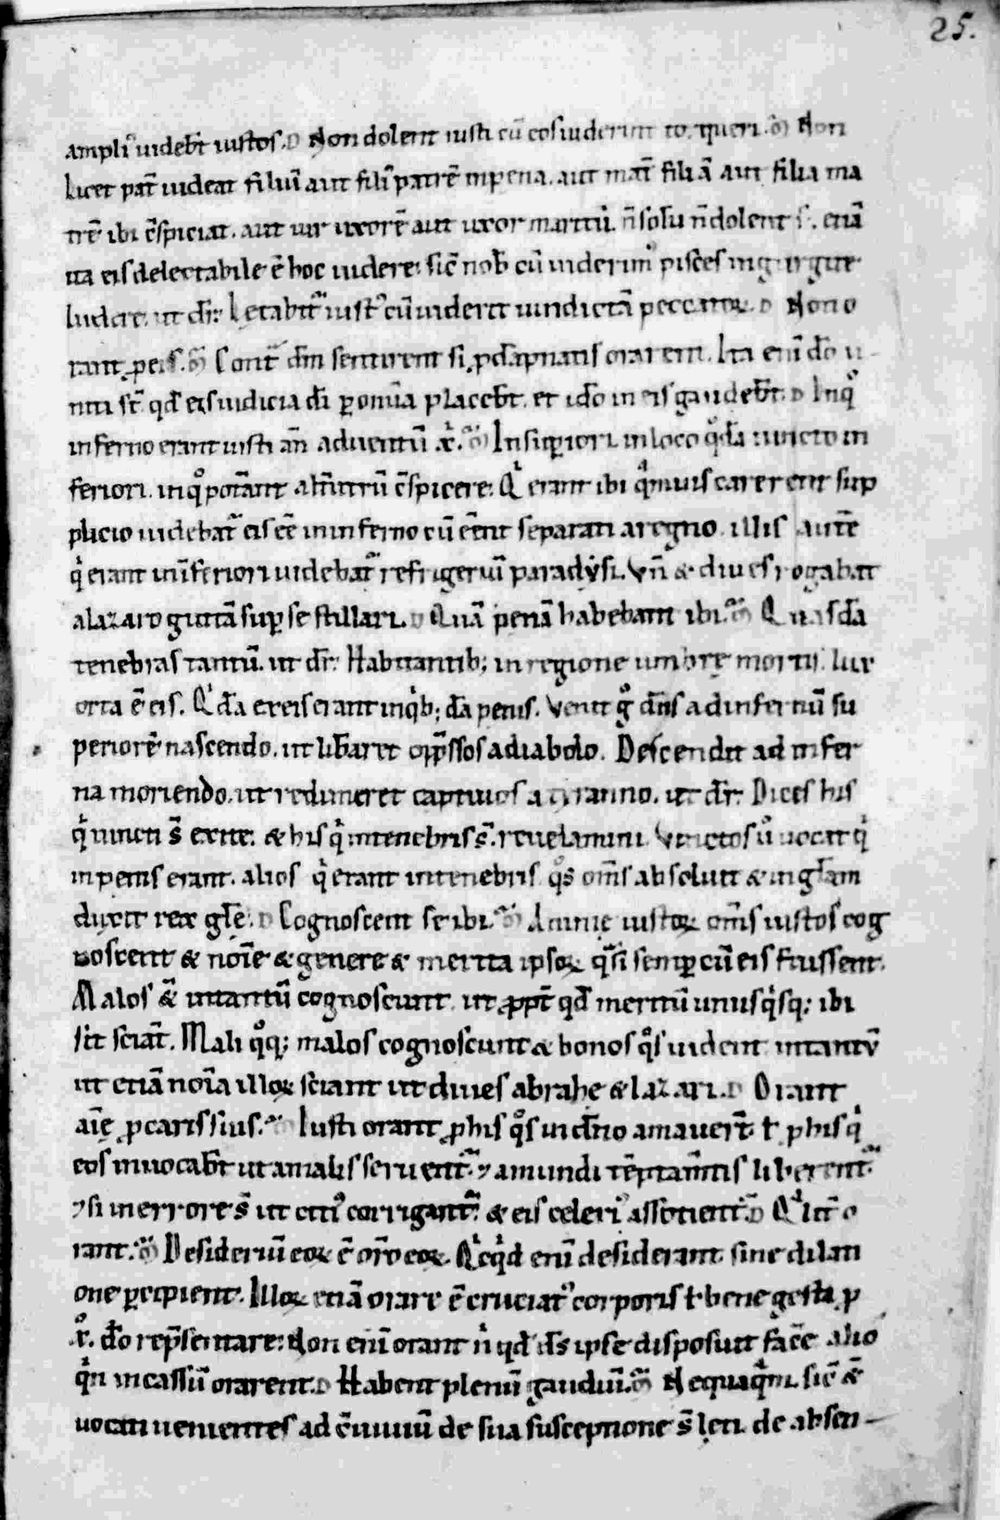 25.
ampliꝰ uidebt̄ iustos. D Non dolent iusti cū eos uiderint to. queri. M̄ Non
licet pat̄ uideat filiū aut filiꝰ patrē in pena. aut mat̄ filiā aut filia ma
trē ibi c̄spiciat. aut uir uxorē aut uxor maritū. n̄ solū n̄ dolent s;. etiā
ita eis delectabile ē hoc uidere: sic̄ nob̄ cū uiderimꝰ pisces in gurgite
ludere. ut dr̄: Letabit᷑ iustꝰ cū uiderit uindictā peccatoꝝ. D Non o
rant ꝓ eis. M̄ Cont̄ dm̄ sentirent si ꝓ dāpnatis orarent. Ita eni dō u-
niti st̄ qd̄ eis iudicia di ꝑ omīa placebt̄. et idō in eis gaudebt̄. D Inqͦ
inferno erant iusti an̄ aduentū x̄. M̄ In suꝑiori. in loco qͦdā iuncto in
feriori. in qͦ potāant alt̄utrū c̄spicere. Qͥ erant ibi qͣmuis carerent sup
plicio uidebat᷑ eis eē in inferno cū eēnt separati a regno. illis autē
qͥ erant in īferiori uidebat᷑ refrigeriū paradẏsi. Vn̄ & diues rogabat
a lazaro guttā suꝑ se stillari. D Quā penā habebant ibi. M̄ Quasdā
tenebras tantū. ut dr̄: Habitantib; in regione umbrę mortis. lux
orta ē eis. Qͥdā ex eis erant in qͥb;dā penis. Venit gͦ dn̄s ad infernū su
periorē nascendo. ut lib̄aret opp̄ssos a diabolo. Descendit ad infer
na moriendo. ut redimeret captiuos a tyranno. ut dr̄: Dices his
qͥ uincti s̄ exite: & his qͥ in tenebris s̄. reuelamini. Vinctos ū uocat qͥ
in penis erant. alios qͥ erant in tenebris qͦs om̄s absoluit & in gl̄am
duxit rex gl̄ę. D Cognoscent se ibi. M̄ Animę iustoꝝ om̄s iustos cog
noscent & noīe & genere & merita ipsoꝝ qͣsi semꝑ cū eis fuissent.
Malos ā in tantū cognoscunt. ut ꝓpt̄ qd̄ meritū unusqͥsq; ibi
sit sciāt. Mali qͦq; malos cognoscunt & bonos qͦs uident intantv̄
ut etiā noīa illoꝝ sciant ut diues abrahe & lazari. D Orant
aīę ꝓ carissimis. M̄ Iusti orant ꝓ his qͦs in dn̄o amauert̄. ł ꝓ his qͥ
eos inuocabt̄ ut a malis seruent᷑ ⁊ a mundi tēptam̄tis liberent᷑.
⁊ si in errore s̄ ut citiꝰ corrigant᷑ & eis celeriꝰ assotient᷑. D Qͣlit̄ o
rant. M̄ Desideriū eoꝝ ē or̄o eoꝝ. Qͥcqͥd eni desiderant sine dilati
one ꝑcipient. Illoꝝ etiā orare ē cruciatꝰ corporis ł bene gesta ꝓ
x̄. dō rep̄sentare: Non eni orant nͥ qd̄ ds̄ ipse disposuit facē alio
qͥn incassū orarent. D Habent plenū gaudiū. M̄ Nequaqͣm. sic̄ ē
uocati uenientes ad c̄uiuiū de sua susceptione s̄ lęti. de absen-